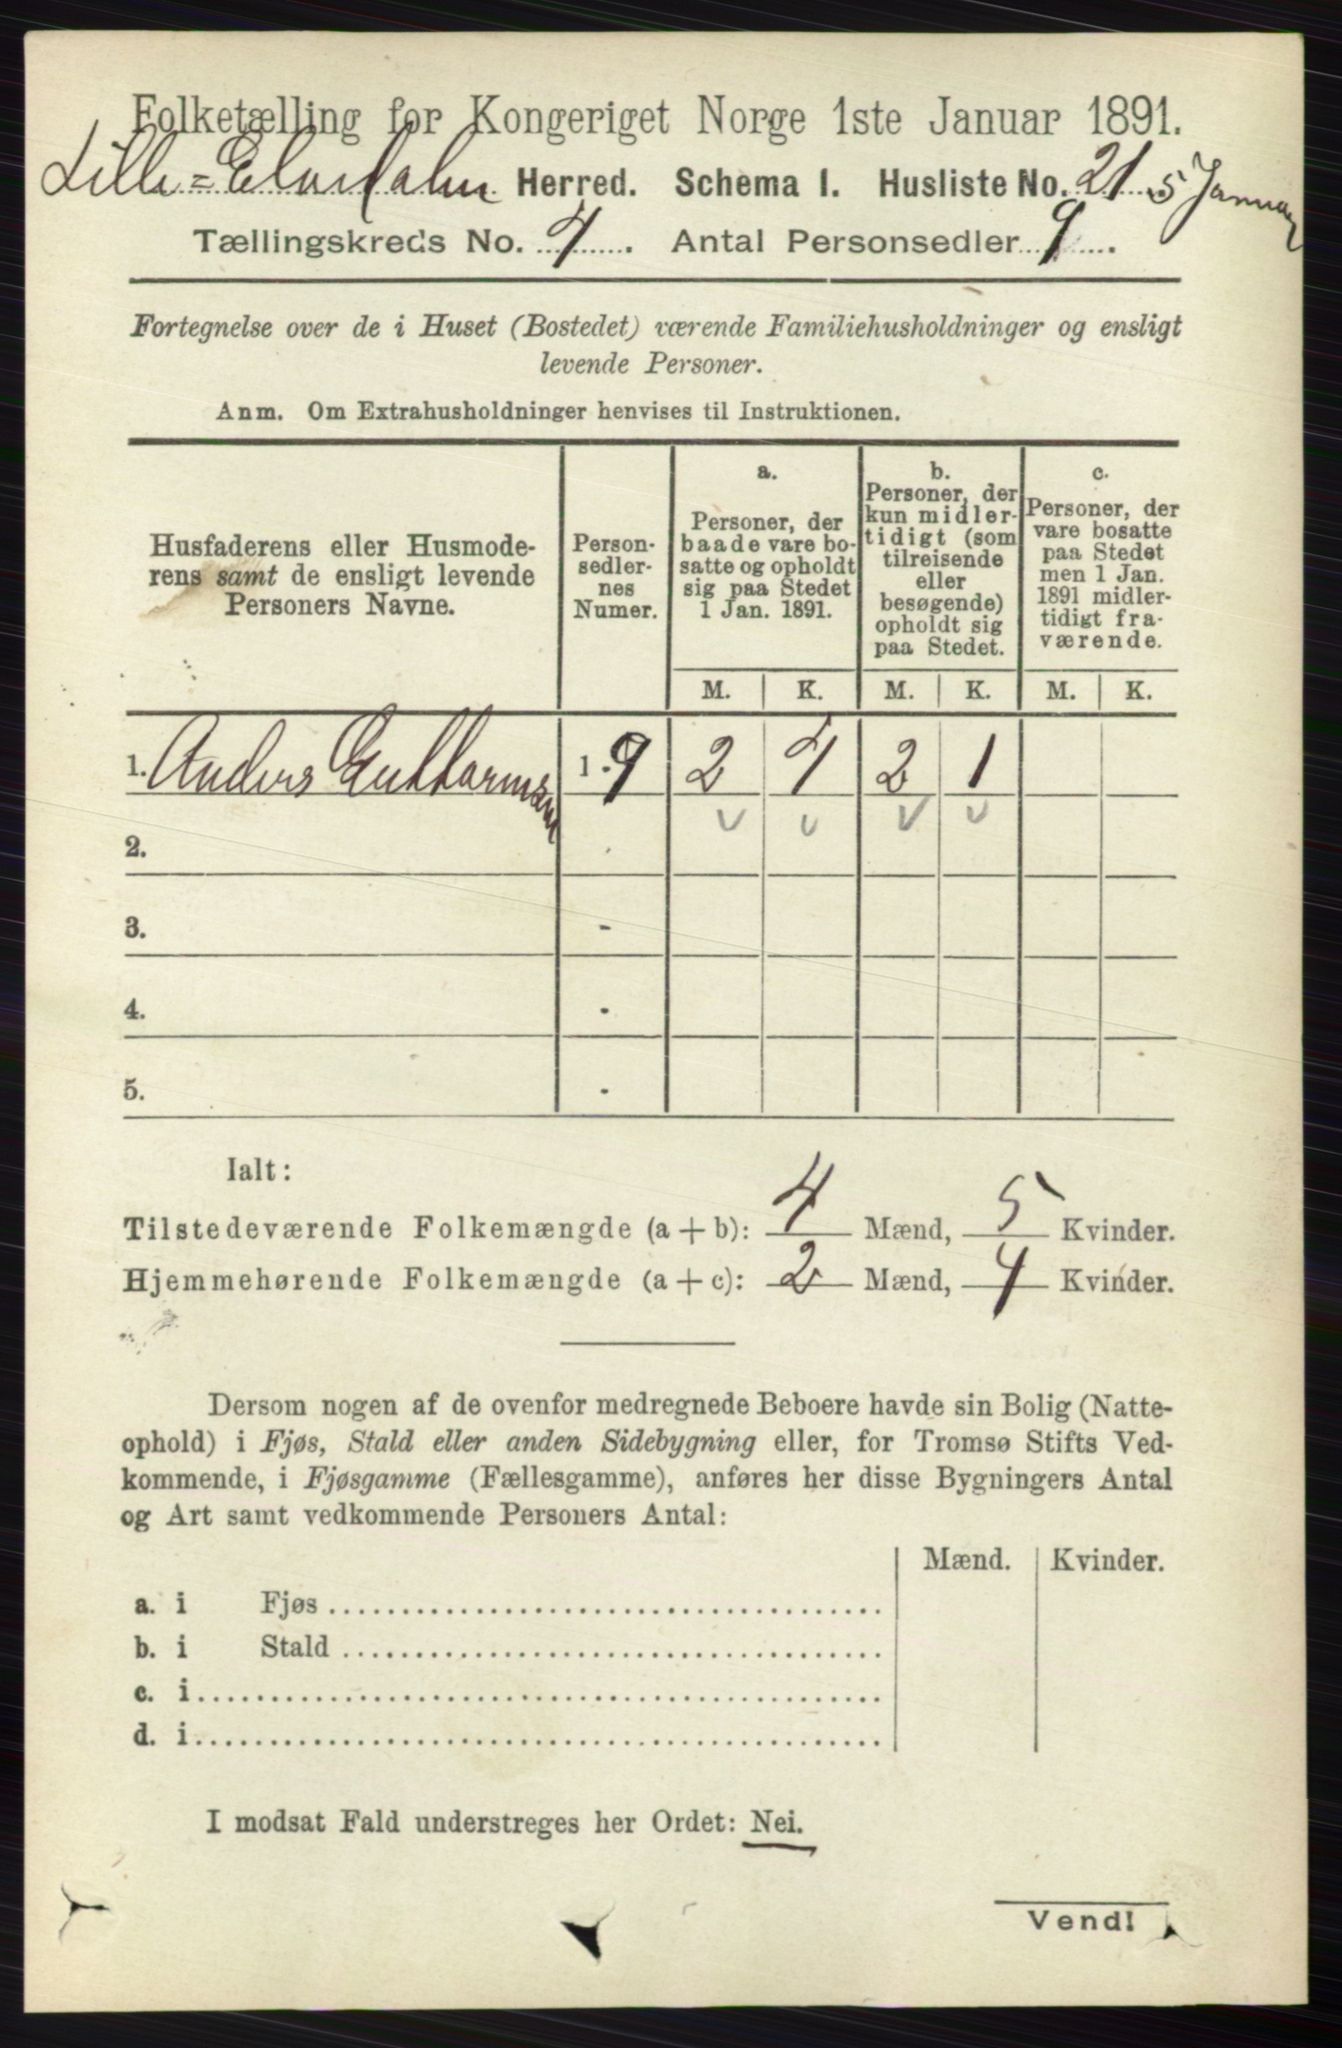 Folketælling for Kongeriget Norge 1ste Januar 1891.
Lille=Elvedalen Herred. Schema I. Husliste No. 21 5 Januar
Tællingskreds No. 4. Antal Personsedler 9.
Fortegnelse over de i Huset (Bostedet) værende Familiehusholdninger og ensligt
levende Personer.
Anm. Om Extrahusholdninger henvises til Instruktionen.
Husfaderens eller Husmode-
rens samt de ensligt levende
Personers Navne.
Person-
sedler-
nes
Numer.
a.
Personer, der
baade vare bo-
satte og opholdt
sig paa Stedet
1 Jan. 1891.
b.
Personer, der
kun midler-
tidigt (som
tilreisende
eller
besøgende)
opholdt sig
paa Stedet.
c.
Personer, der
vare bosatte
paa Stedet
men 1 Jan.
1891 midler-
tidigt fra-
værende.
M. K. M. K. M. K.
1. Anders 1-9 2 4 2 1
2.
3. -
4. -
5. -
Ialt:
Tilstedeværende Folkemængde (a + b): 4 Mænd, 5 Kvinder.
Hjemmehørende Folkemængde (a + c): 2 Mænd, 4 Kvinder.
Dersom nogen af de ovenfor medregnede Beboere havde sin Bolig (Natte-
ophold) i Fjøs, Stald eller anden Sidebygning eller, for Tromsø Stifts Ved-
kommende, i Fjøsgamme (Fællesgamme), anføres her disse Bygningers Antal
og Art samt vedkommende Personers Antal:
Mænd. Kvinder.
a. i Fjøs
b. i Stald
c. i
d. i
I modsat Fald understreges her Ordet: Nei.
Vend!